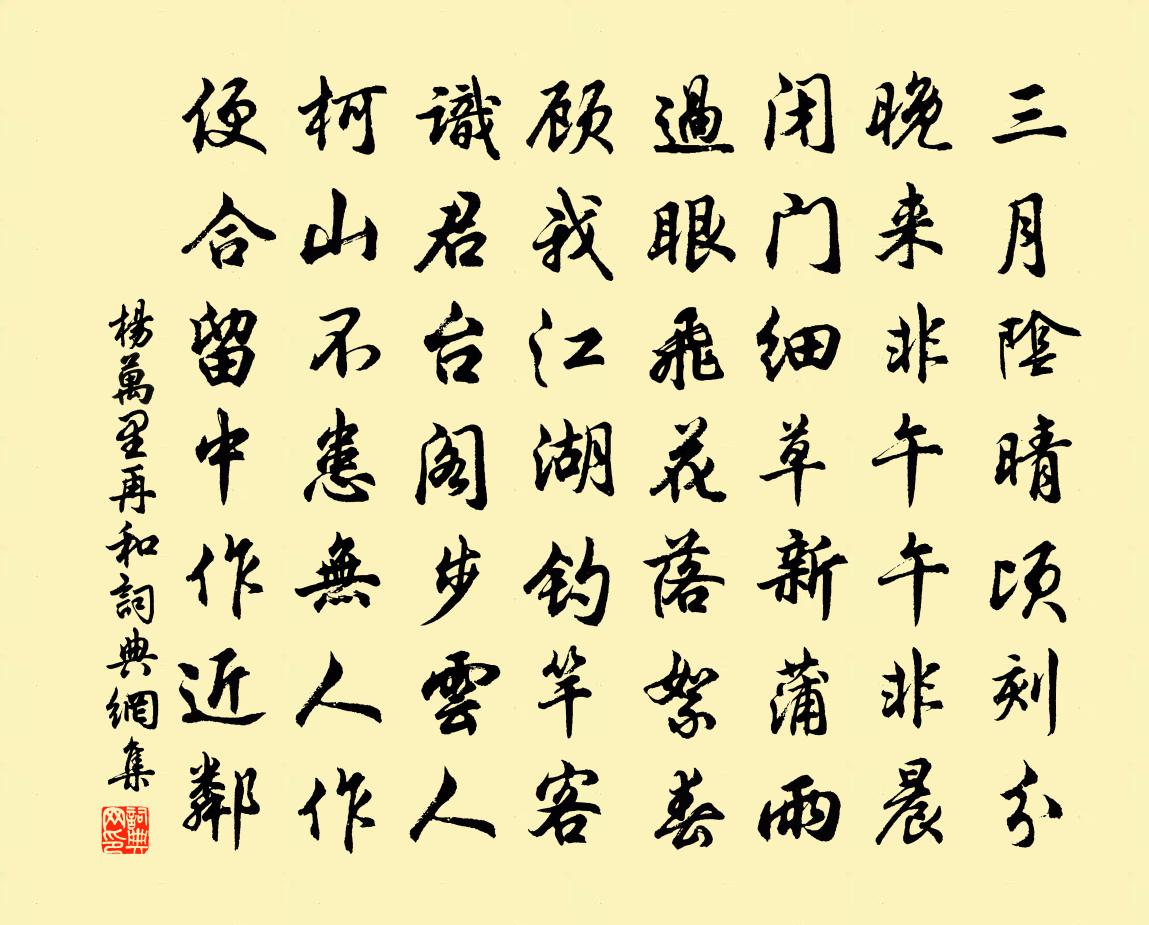 三月陰晴頃刻分
晚来非午午非晨
闭门细草新蒲雨
過眼飛花落絮春
顾我江湖钓竿客
識君台阁步雲人
柯山不患無人作
便合留中作近鄰
楊萬里再和詞典網集
詞典网印